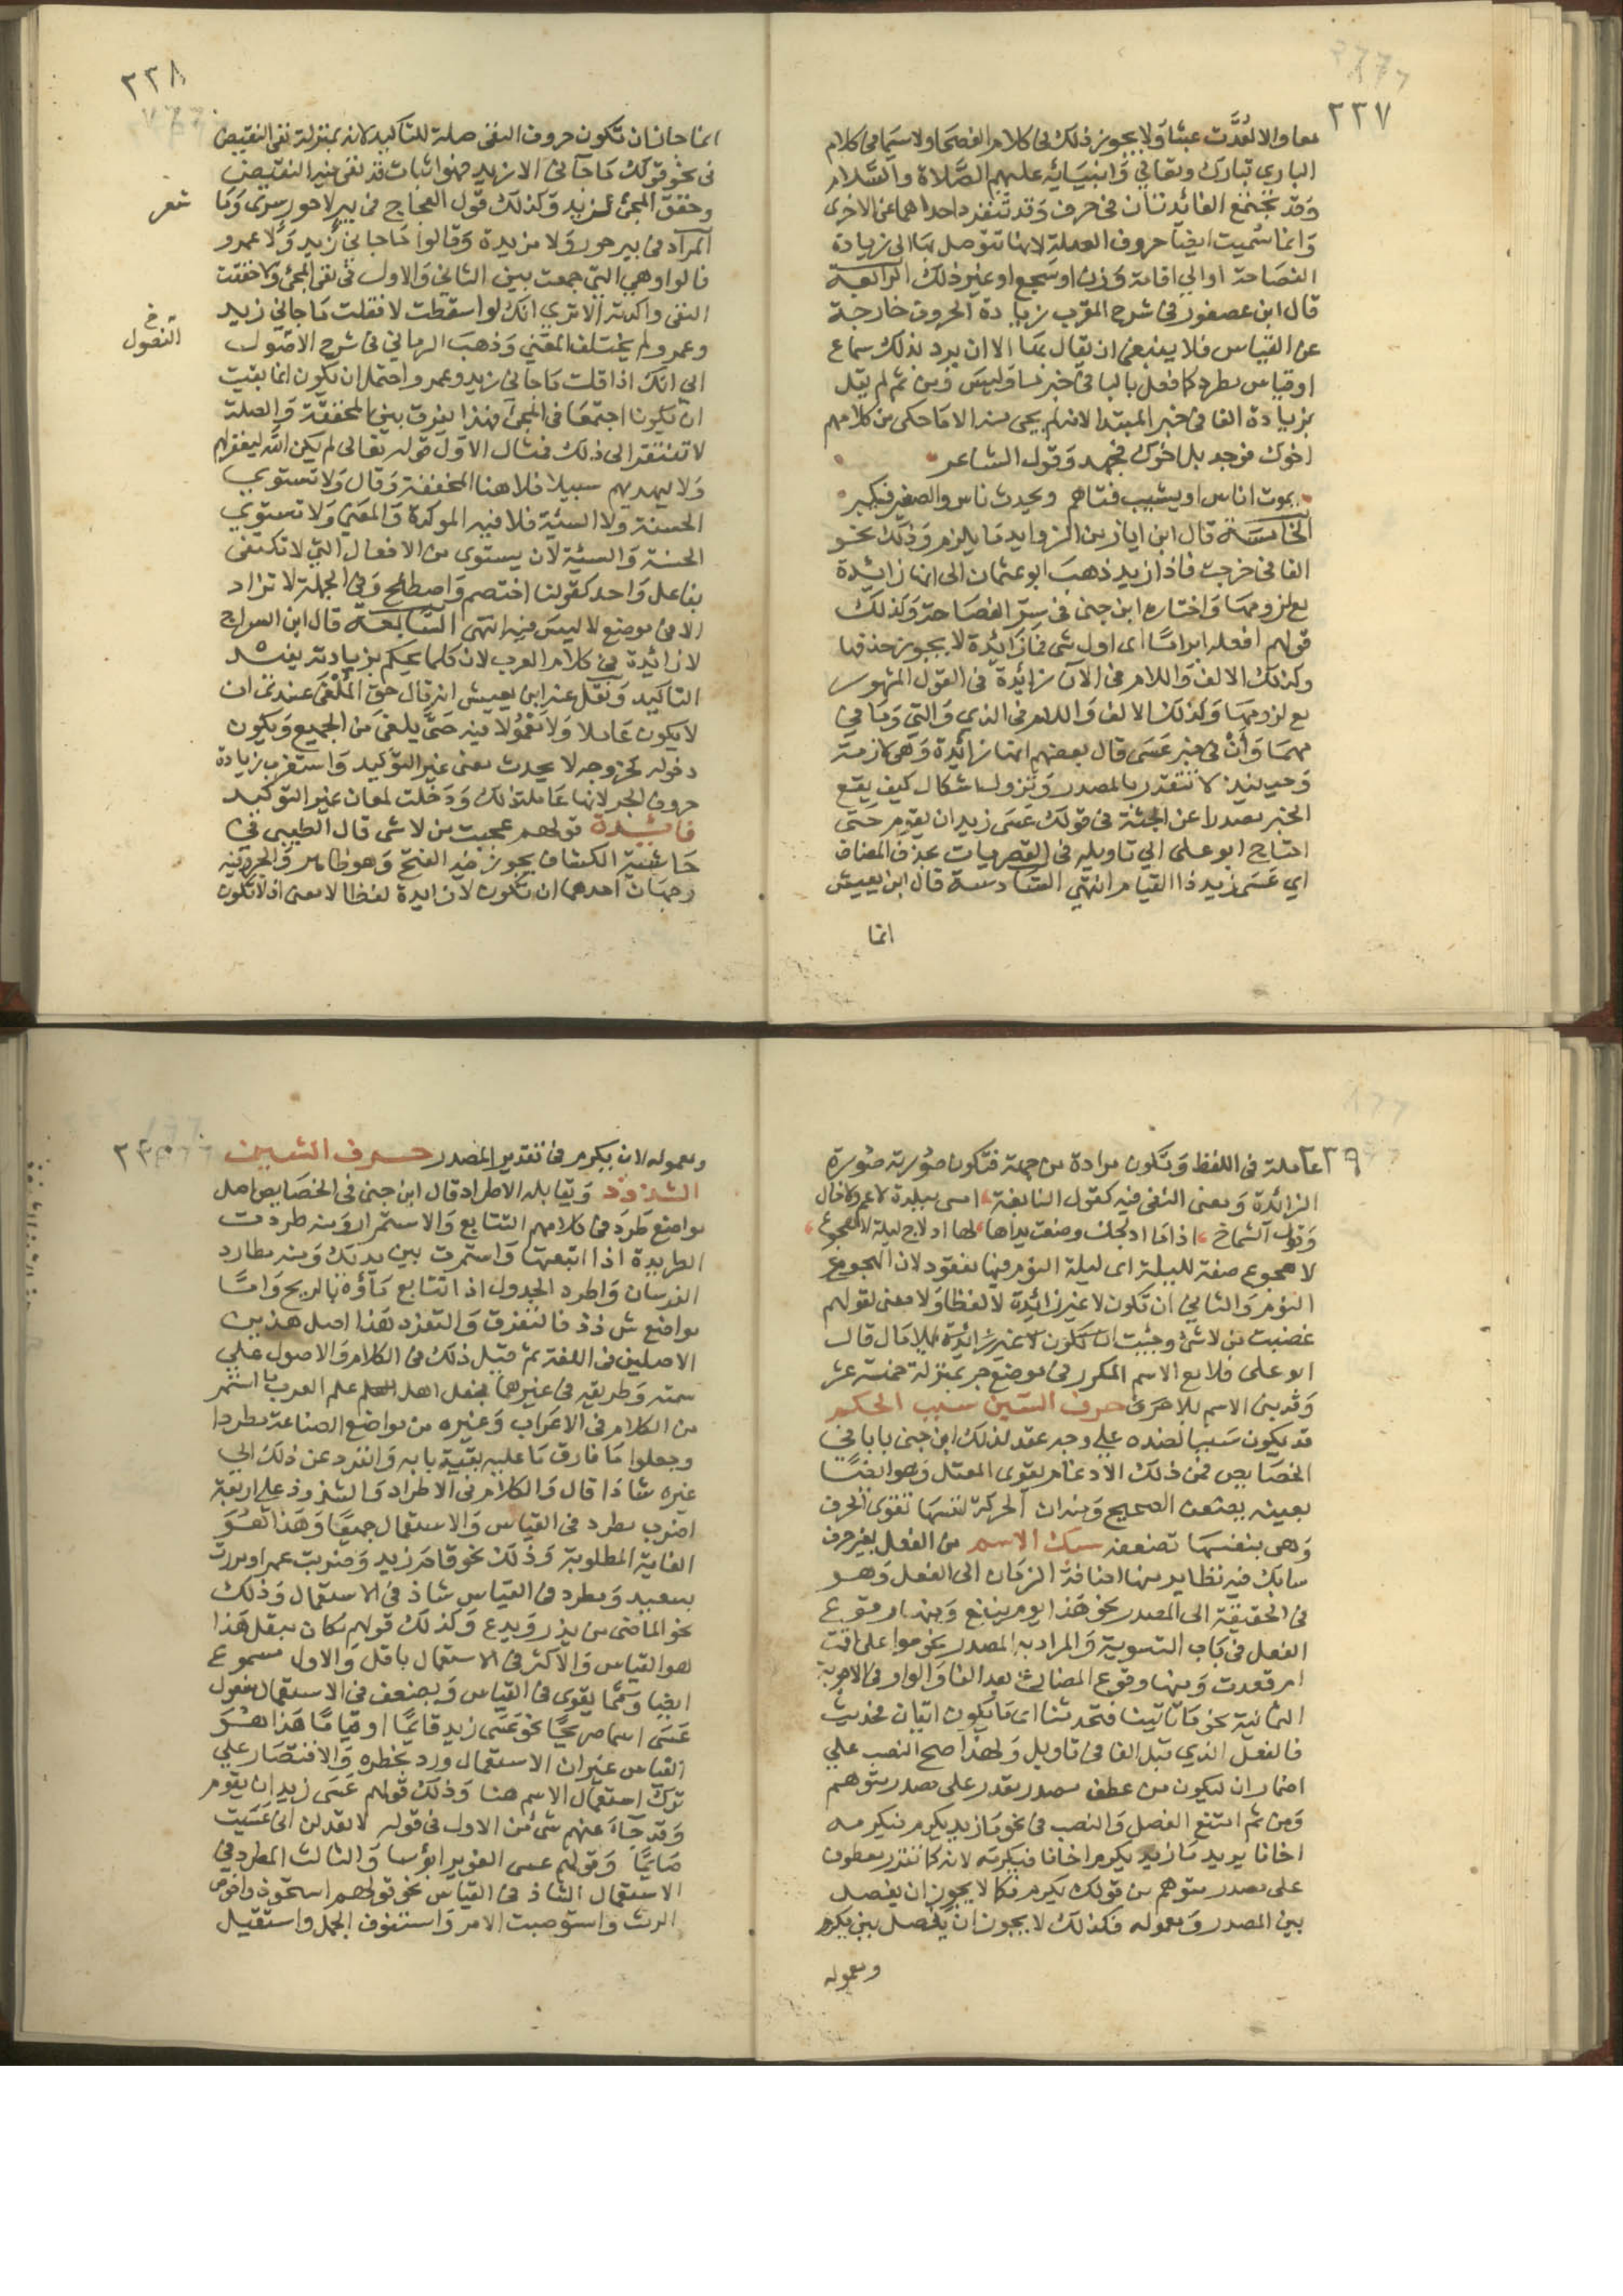 ٢٢٧
معا والا لعُدَّت عبثا ولا يجوز ذلك في كلام الفصحا ولا سيما في كلام
الباري تبارك وتعالي وانبيائه عليهم الصلاة والسلام
وقد تجتمع الفائدتان في حرف وقد تنفرد احداهما عن الاخرى
وانما سميت ايضا حروف الصلة لانها يتوصل بها الى زيادة
الفصاحة او الي اقامة وزن او سجع او غير ذلك الرابعة
قال ابن عصفور في شرح المقرب زيادة الحروف خارجة
عن القياس فلا ينبغي ان يقال بها الا ان يرد بذلك سماع
او قياس مطرد كما فعل بالبا في خبر ما وليس ومن ثم لم يقل
بزيادة الفا في خبر المبتدا لانه لم يجى منه الا ما حكى من كلامهم
اخوك فوجد بل اخوك فجهد وقول الشاعر
يموت اناس او يشيب فتاهم ويحدث ناس والصغير فيكبر
الخامسة قال ابن اياز من الزوايد ما يلزم وذلك نحو
الفا في خرجت فاذا زيد ذهب ابو عثمان الى انها زائدة
مع لزومها واختاره ابن جني في سر الفصاحة وكذلك
قولهم افعله اثرا ما اى اول شى فما زائدة لا يجوز حذفها
وكذلك الالف واللام في الآن زائدة في القول المشهور
مع لزومها وكذلك الالف واللام في الذي والتي وما في
مهما وأنْ في خبر عسى قال بعضهم انها زائدة وهى لازمة
وحينيذ لا تتقدر بالمصدر ويزول اشكال كيف يقع
الخبر مصدرا عن الجثة في قولك عسى زيد ان يقوم حتى
احتاج ابو على الي تاويله في القصريات بحذف المضاف
اي عسى زيد ذا القيام انتهي السادسة قال ابن يعيش
انما
٢٣٨
انما جاز ان تكون حروف النفى صلة للتاكيد لانه بمنزلة نفى النقيض
في نحو قولك ما جآنى الا زيد فهو اثبات قد نفى فيه النقيض
وحقق المجئ لزيد وكذلك قول العجاج في بير لا حور سرى وما
شعر
المراد في بير حور ولا مزيدة وقالوا ما جاني زيد ولا عمرو
قالوا وهي التي جمعت بين الثاني والاول في نفى المجئ ولا حققت
النفى واكدته الا تري انك لو اسقطت لا فقلت ما جاني زيد
وعمرو لم يختلف المعني وذهب الرماني في شرح الاصول
الي انك اذا قلت ما جآنى زيد وعمرو احتمل ان يكون انما نفيت
ان يكونا اجتمعا في المجئ فهذا الفرق بين المحققة والصلة
لا تفتقر الى ذلك فمثال الاول قوله تعالى لم يكن الله ليغفر لهم
ولا ليهديهم سبيلا فلا هنا المحققة وقال ولا تستوي
الحسنة ولا السيئة فلا فيه الموكدة والمعنى ولا تستوي
الحسنة والسيئة لان يستوى من الافعال التي لا تكتفى
بفاعل واحد كقولنا اختصم واصطلح وفي الجملة لا تزاد
الا في موضع لا لبس فيه انتهى السابعة قال ابن السراج
لا زائدة في كلام العرب لان كلما يحكم بزيادته يفيد
التاكيد ونقل عنه ابن يعيش انه قال حق المُلْغَى عندى ان
لا يكون عاملا ولا معمولا فيه حتى يلغى من الجميع ويكون
دخوله كخروجه لا يحدث معنى غير التوكيد واستغرب زيادة
حروف الجر لانها عاملة ودخلت لمعان غير التوكيد
فائدة قولهم عجبت من لا شى قال الطيبي في
حاشية الكشاف يجوز فيه الفتح وهو ظاهر والجر وفيه
وجهان احدهما ان تكون لا زايدة لفظا لا معنى اذ لا تكون
٢٣٩
عاملة في اللفظ وتكون مرادة من جهة فتكون صورته صورة
الزائدة ومعنى النفى فيه كقول النابغة امسى ببلدة لا عم ولا خال
وقول الشماخ اذا ما ادلجت وصفت يداها لها ادلاج ليلة لا هجوع
لا هجوع صفة لليلة اى ليلة النوم فيها مفقود لان الهجوع
النوم والثاني ان تكون لا غير زائدة لا لفظا ولا معنى لقولهم
غضبت من لا شئ وجئت
ابو على فلا مع الاسم المكرر في موضع جر بمنزلة خمسة عشر
وقد بنى الاسم للا حرف السين سبب الحكم
قد يكون سببا لضده على وجه عقد لذلك ابن جنى بابا في
الخصايص فمن ذلك الادغام يقوى المعتل وهو ايضا
بعينه يضعف الصحيح ومنه ان الحركة نفسها تقوى الحرف
وهى بنفسها تضعفه سبك الاسم من الفعل بغير حرف
سابك فيه نظاير منها اضافة الزمان الى الفعل وهو
في الحقيقة الى المصدر نحو هذا يوم ينفع ومنها وقوع
الفعل في باب التسوية والمراد به المصدر نحو سوا على اقمت
ام قعدت ومنها وقوع المضارع بعد الفا والواو في الاجوبة
الثمانية نحو ما تاتينا فتحدثنا اى ما يكون اتيان فحديث
فالفعل الذي قبل الفا في تاويل ولهذا صح النصب علي
اضمار ان ليكون من عطف مصدر مقدر على مصدر متوهم
ومن ثم امتنع الفصل والنصب في نحو ما زيد يكرم فيكرمه
اخانا يريد ما زيد يكرم اخانا فيكرمه لانه كما تقرر معطوف
على مصدر متوهم من قولك يكرم فكما لا يجوز ان يفصل
بين المصدر ومعموله فكذلك لا يجوز ان يفصل بين يكرم
ومعموله
٢٤٠
ومعموله لان يكرم في تقدير المصدر حرف الشين
الشذوذ ويقابله الاطراد قال ابن جنى في الخصايص اصل
مواضع طرد في كلامهم التتابع والاستمرار ومنه طردت
الطريدة اذا اتبعتها واستمرت بين يديك ومنه مطاردة
الفرسان واطرد الجدول اذا تتابع ماؤه بالريح واما
مواضع ش ذ ذ فالتفرق والتفرد هذا اصل هذين
الاصلين في اللغة ثم قيل ذلك في الكلام والاصول علي
سمته وطريقه في غيرهما فجعل اهل علم العرب ما استمر
من الكلام في الاعراب وغيره من مواضع الصناعة مطردا
وجعلوا ما فارق ما عليه بقية بابه وانفرد عن ذلك الي
غيره شاذا قال والكلام في الاطراد والشذوذ على اربعة
اضرب مطرد في القياس والاستعمال جميعا وهذا هو
الغاية المطلوبة وذلك نحو قام زيد وضربت عمرا ومررت
بسعيد ومطرد في القياس شاذ في الاستعمال وذلك
نحو الماضى من يذر ويدع وكذلك قولهم مكان مبقل هذا
هو القياس والاكثر في الاستعمال باقل والاول مسموع
ايضا ومما يقوى في القياس ويضعف في الاستعمال مفعول
عسى اسما صريحا نحو عسى زيد قائما او قياما هذا هو
القياس غير ان الاستعمال ورد بحظره والاقتصار علي
ترك استعمال الاسم هنا وذلك قولهم عسى زيد ان يقوم
وقد جآء عنهم شئ من الاول في قوله لا تعذلن انى عسيت
صائما وقولهم عسى الغوير ابؤسا والثالث المطرد في
الاستعمال الشاذ في القياس نحو قولهم استحوذ واخوص
الرمث واستوصبت الامر واستنوق الجمل واستفيل